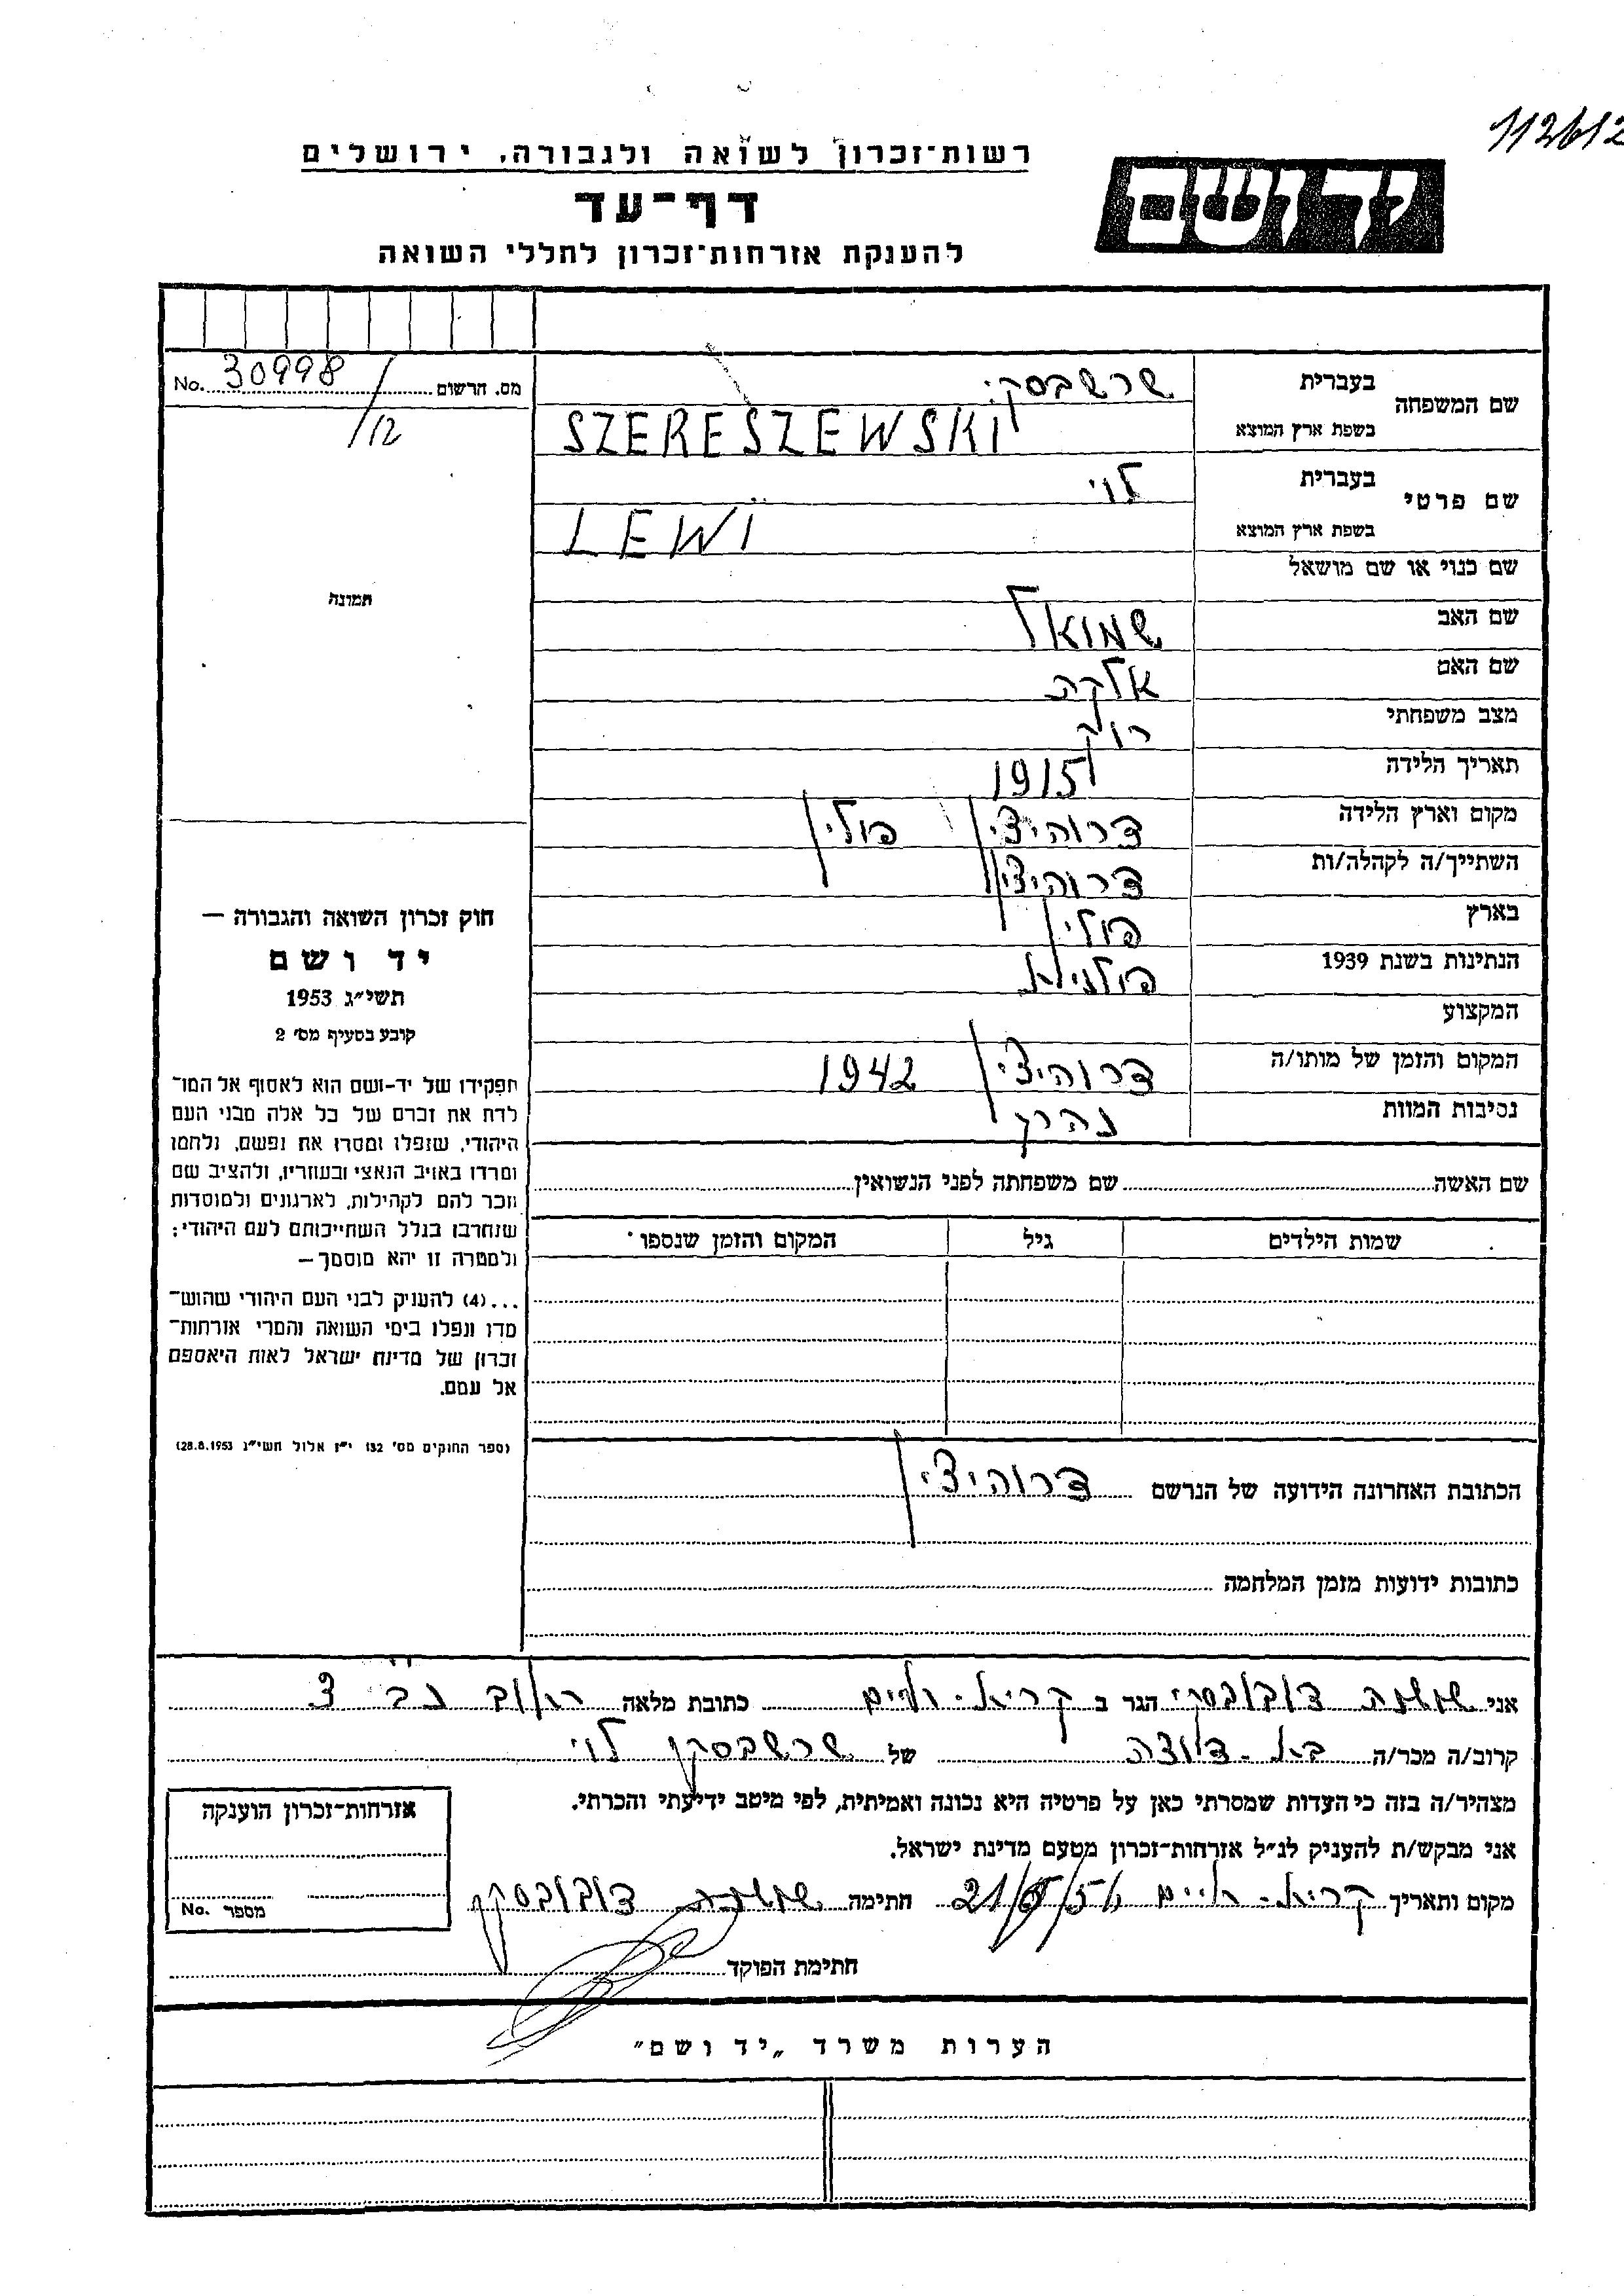 112612
רשות־זכרון לשואה ולגבורה, ירושלים
יד ושם
דף־עד
להענקת אזרחות־זכרון לחללי השואה
שם המשפחה בעברית שרשבסקי
בשפת ארץ המוצא SZERESZEWSKI
מס. הרשום 30998/12 No.
שם פרטי בעברית לוי
בשפת ארץ המוצא LEWI
שם כנוי או שם מושאל
תמונה
שם האב שמואל
שם האם אלקה
מצב משפחתי רוק
תאריך הלידה 1915
מקום וארץ הלידה דרוהיצין פולין
השתייך/ה לקהלה/ות דרוהיצין
בארץ פולין
הנתינות בשנת 1939 פולנית
המקצוע
המקום והזמן של מותו/ה דרוהיצין 1942
נסיבות המוות נהרג
חוק זכרון השואה והגבורה —
יד ושם
תשי״ג 1953
קובע בסעיף מס׳ 2
תפקידו של יד־ושם הוא לאסוף אל המו־
לדת את זכרם של כל אלה מבני העם
היהודי, שנפלו ומסרו את נפשם, נלחמו
ומרדו באויב הנאצי ובעוזריו, ולהציב שם
וזכר להם לקהילות, לארגונים ולמוסדות
שנחרבו בגלל השתייכותם לעם היהודי;
ולמטרה זו יהא מוסמך —
...(4) להעניק לבני העם היהודי שהוש־
מדו ונפלו בימי השואה והמרי אזרחות־
זכרון של מדינת ישראל לאות היאספם
אל עמם.
(ספר החוקים מס׳ 132 י״ז אלול תשי״ג 28.8.1953)
שם האשה שם משפחתה לפני הנשואין
שמות הילדים גיל המקום והזמן שנספו
הכתובת האחרונה הידועה של הנרשם דרוהיצין
כתובות ידועות מזמן המלחמה
אני שושנה דובובסקי הגר ב קרית-חיים כתובת מלאה רחוב נב 3
קרוב/ה מכר/ה בת-דודה של שרשבסקי לוי
מצהיר/ה בזה כי העדות שמסרתי כאן על פרטיה היא נכונה ואמיתית, לפי מיטב ידיעתי והכרתי.
אני מבקש/ת להעניק לנ״ל אזרחות־זכרון מטעם מדינת ישראל.
מקום ותאריך קרית-חיים חתימה שושנה דובובסקי
חתימת הפוקד
אזרחות־זכרון הוענקה
מספר No.
הערות משרד „יד ושם״